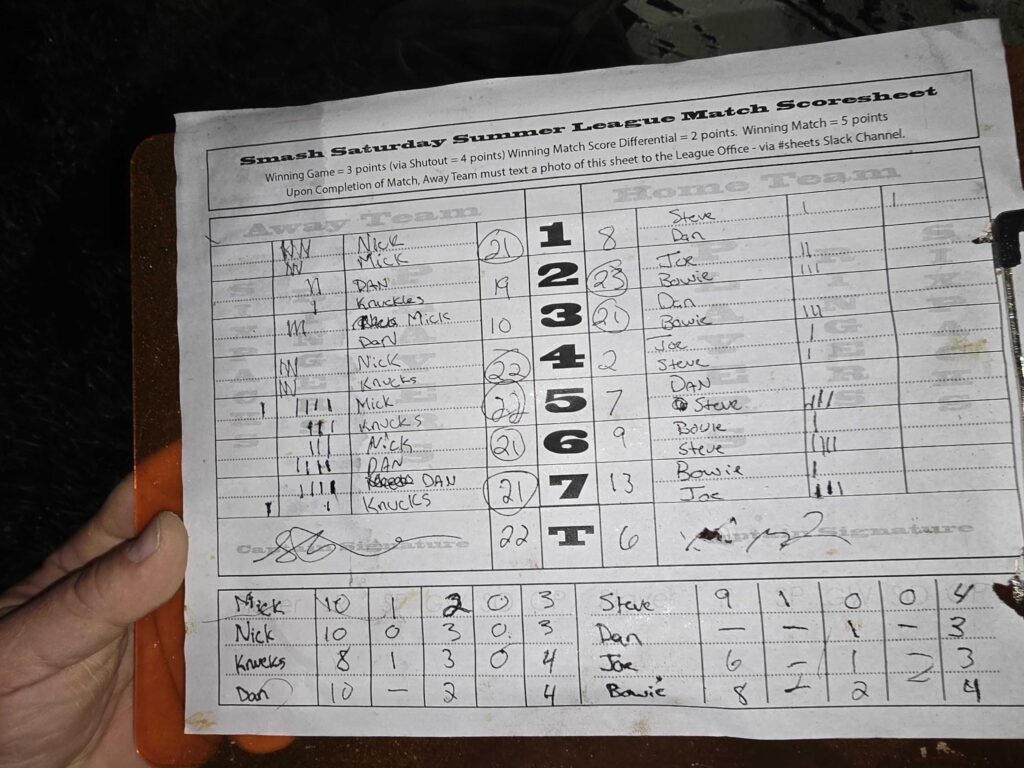 Smash Saturday Summer League Match Scoresheet
Winning Game = 3 points (via Shutout = 4 points) Winning Match Score Differential = 2 points. Winning Match = 5 points
Upon Completion of Match, Away Team must text a photo of this sheet to the League Office - via #sheets Slack Channel.
Away Team Home Team
Nick 21 1 8 Steve
Mick Dan
DAN 19 2 23 Joe
Knuckles Bowie
Mick 10 3 21 Dan
Dan Bowie
Nick 22 4 2 Joe
Knucks Steve
Mick 22 5 7 DAN
Knucks Steve
Nick 21 6 9 Bowie
DAN Steve
DAN 21 7 13 Bowie
Knucks Joe
Captain Signature 22 T 6 Captain Signature
Mick 10 1 2 0 3 Steve 9 1 0 0 4
Nick 10 0 3 0 3 Dan — — 1 — 3
Knucks 8 1 3 0 4 Joe 6 — 1 3
Dan 10 — 2 4 Bowie 8 2 4